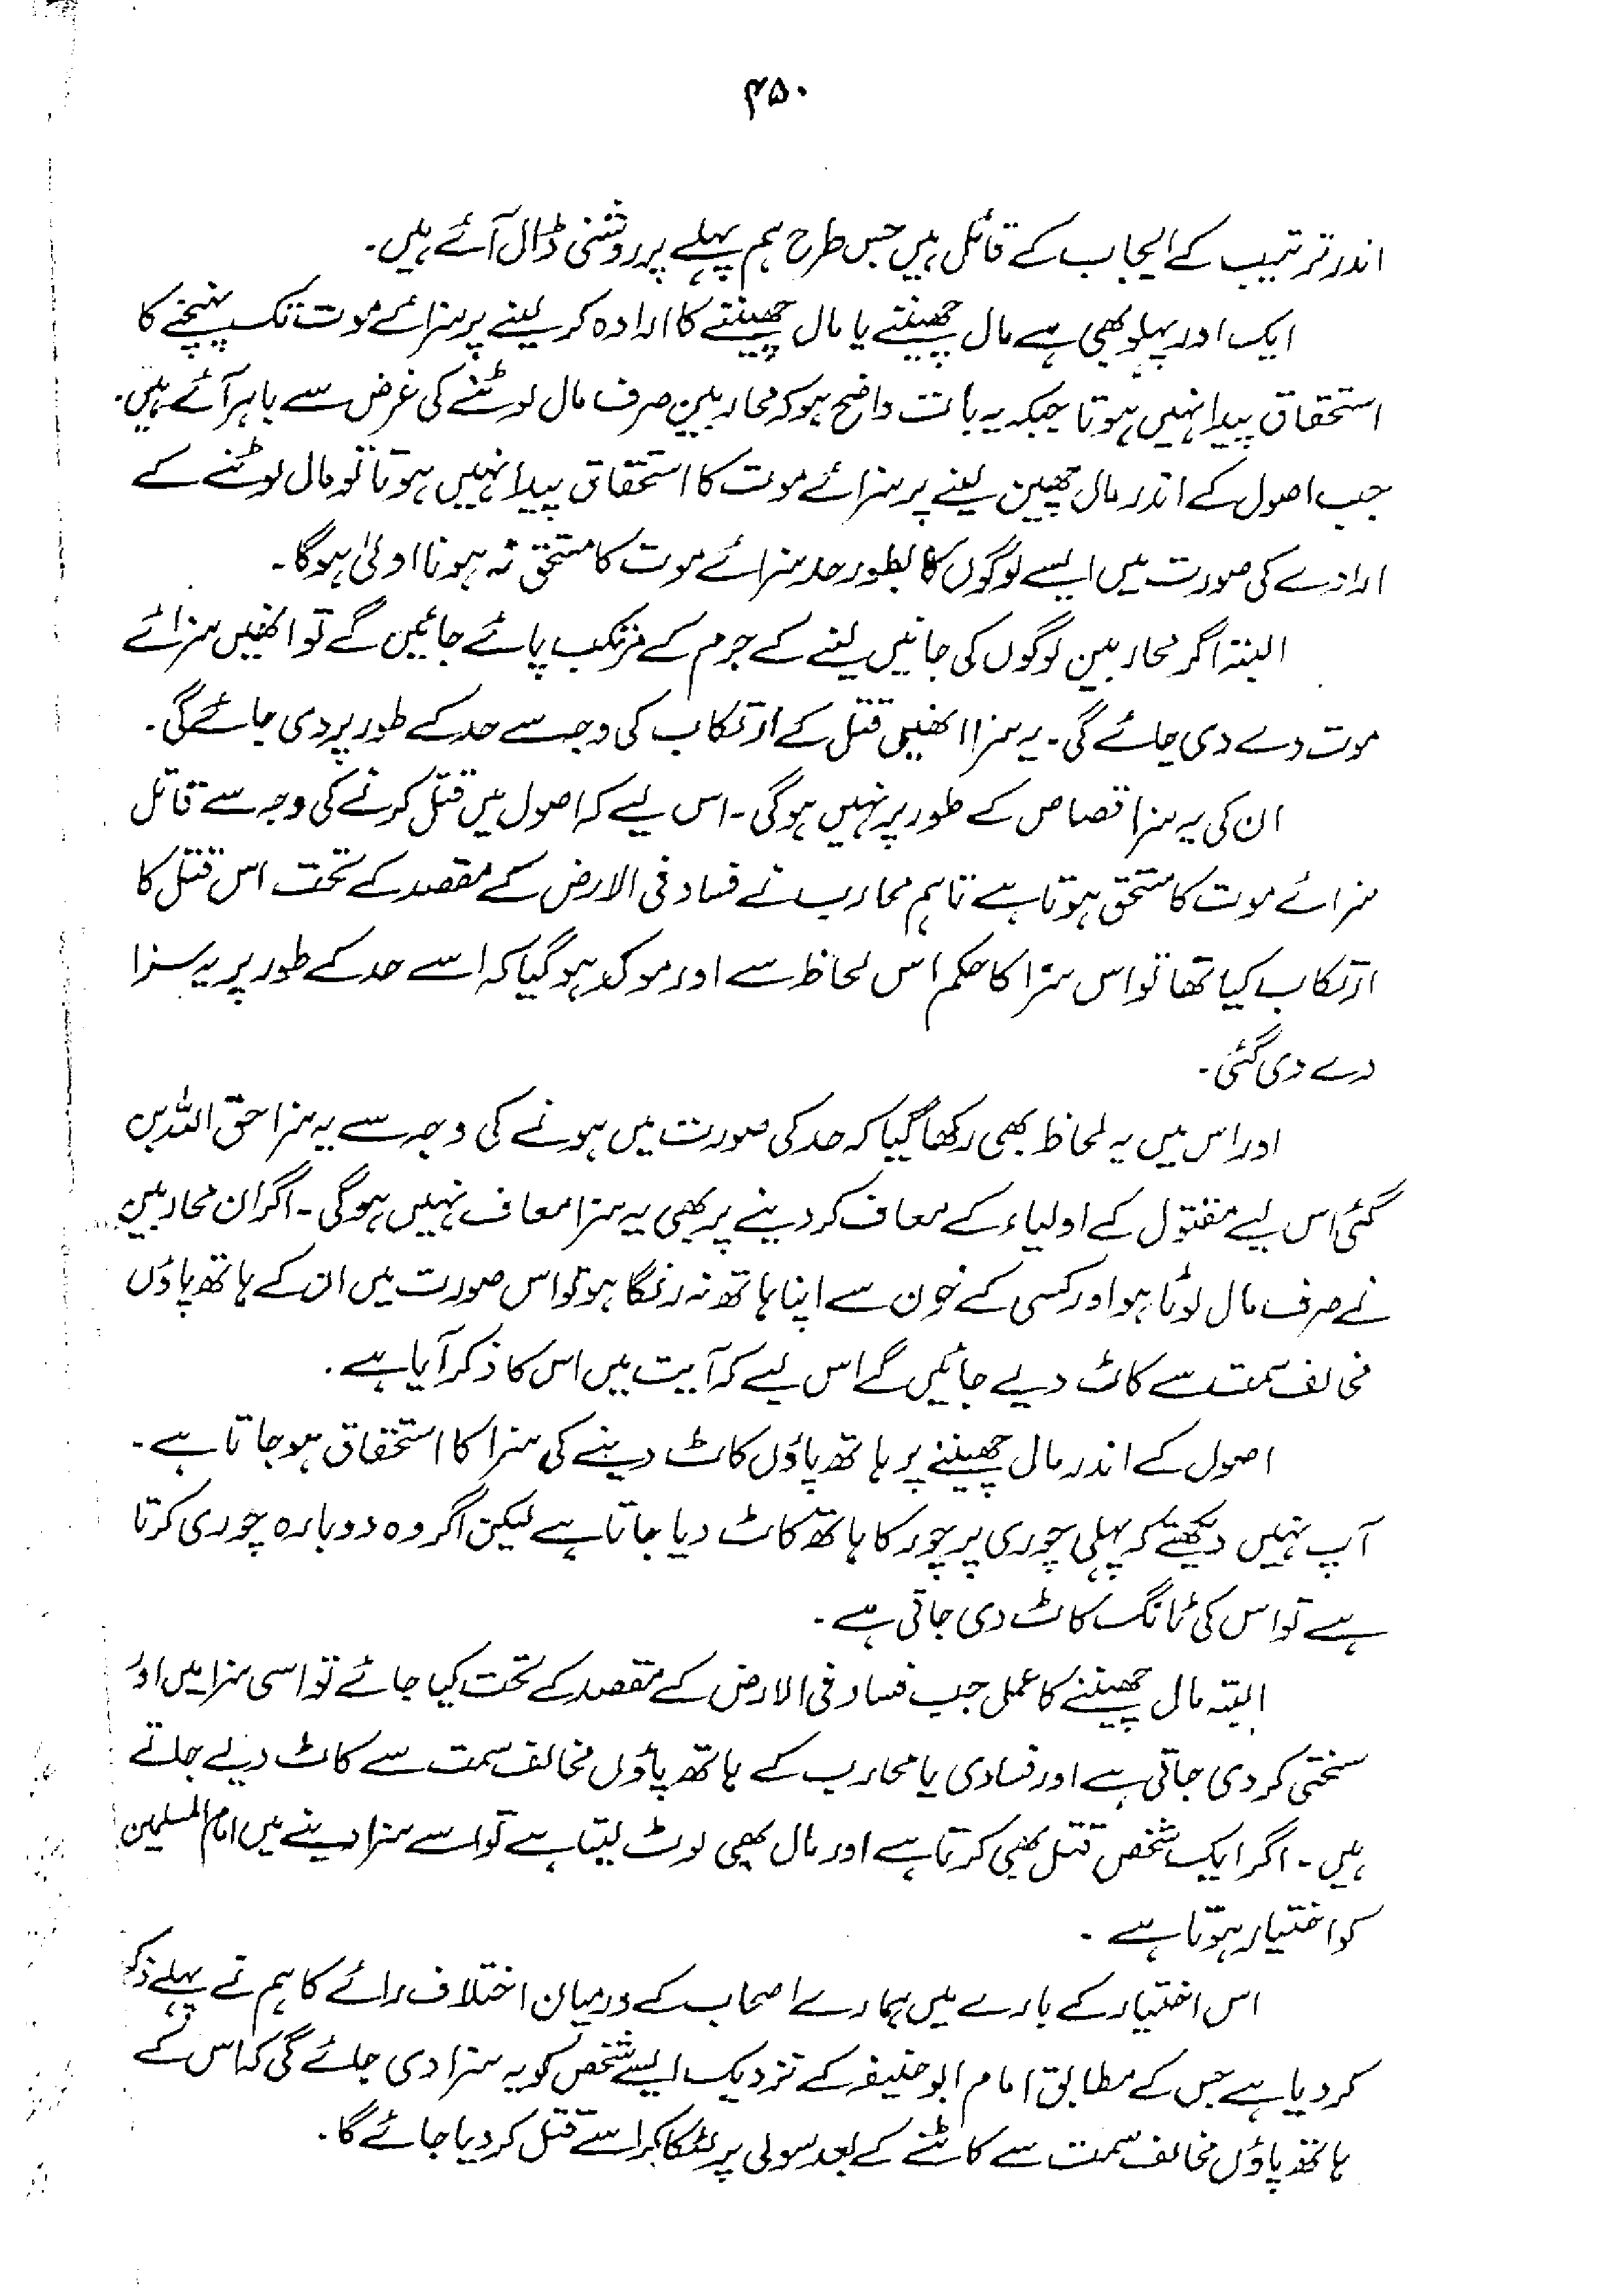 ۴۵۰
اندر ترتیب کے ایجاب کے قائل ہیں جس طرح ہم پہلے پر روشنی ڈال آئے ہیں۔
ایک اور پہلو بھی ہے مال چھیننے یا مال چھیننے کا ارادہ کر لینے پر سزائے موت تک پہنچنے کا
استحقاق پیدا نہیں ہوتا جبکہ یہ بات واضح ہو کہ محاربین صرف مال لوٹنے کی غرض سے باہر آئے ہیں۔
جب اصول کے اندر مال چھین لینے پر سزائے موت کا استحقاق پیدا نہیں ہوتا تو مال لوٹنے کے
ارادے کی صورت میں ایسے لوگوں کا بطور حد سزائے موت کا مستحق نہ ہونا اولیٰ ہوگا۔
البتہ اگر محاربین لوگوں کی جانیں لینے کے جرم کے مرتکب پائے جائیں گے تو انھیں سزائے
موت دے دی جائے گی۔ یہ سزا انھیں قتل کے ارتکاب کی وجہ سے حد کے طور پر دی جائے گی۔
ان کی یہ سزا قصاص کے طور پر نہیں ہوگی۔ اس لیے کہ اصول میں قتل کرنے کی وجہ سے قاتل
سزائے موت کا مستحق ہوتا ہے تاہم محارب نے فساد فی الارض کے مقصد کے تحت اس قتل کا
ارتکاب کیا تھا تو اس سزا کا حکم اس لحاظ سے اور موکد ہوگیا کہ اسے حد کے طور پر یہ سزا
دے دی گئی۔
اور اس میں یہ لحاظ بھی رکھا گیا کہ حد کی صورت میں ہونے کی وجہ سے یہ سزا حق اللہ بن
گئی اس لیے مقتول کے اولیاء کے معاف کر دینے پر بھی یہ سزا معاف نہیں ہوگی۔ اگر ان محاربین
نے صرف مال لوٹا ہو اور کسی کے خون سے اپنا ہاتھ نہ رنگا ہو تو اس صورت میں ان کے ہاتھ پاؤں
مخالف سمت سے کاٹ دیے جائیں گے اس لیے کہ آیت میں اس کا ذکر آیا ہے۔
اصول کے اندر مال چھیننے پر ہاتھ پاؤں کاٹ دینے کی سزا کا استحقاق ہو جاتا ہے۔
آپ نہیں دیکھتے کہ پہلی چوری پر چور کا ہاتھ کاٹ دیا جاتا ہے لیکن اگر وہ دوبارہ چوری کرتا
ہے تو اس کی ٹانگ کاٹ دی جاتی ہے۔
البتہ مال چھیننے کا عمل جب فساد فی الارض کے مقصد کے تحت کیا جائے تو اسی سزا میں اور
سختی کر دی جاتی ہے اور فسادی یا محارب کے ہاتھ پاؤں مخالف سمت سے کاٹ دیے جاتے
ہیں۔ اگر ایک شخص قتل بھی کرتا ہے اور مال بھی لوٹ لیتا ہے تو اسے سزا دینے میں امام المسلمین
کو اختیار ہوتا ہے۔
اس اختیار کے بارے میں ہمارے اصحاب کے درمیان اختلاف رائے کا ہم نے پہلے ذکر
کر دیا ہے جس کے مطابق امام ابو حنیفہ کے نزدیک ایسے شخص کو یہ سزا دی جائے گی کہ اس کے
ہاتھ پاؤں مخالف سمت سے کاٹنے کے بعد سولی پر لٹکا کر اسے قتل کر دیا جائے گا۔